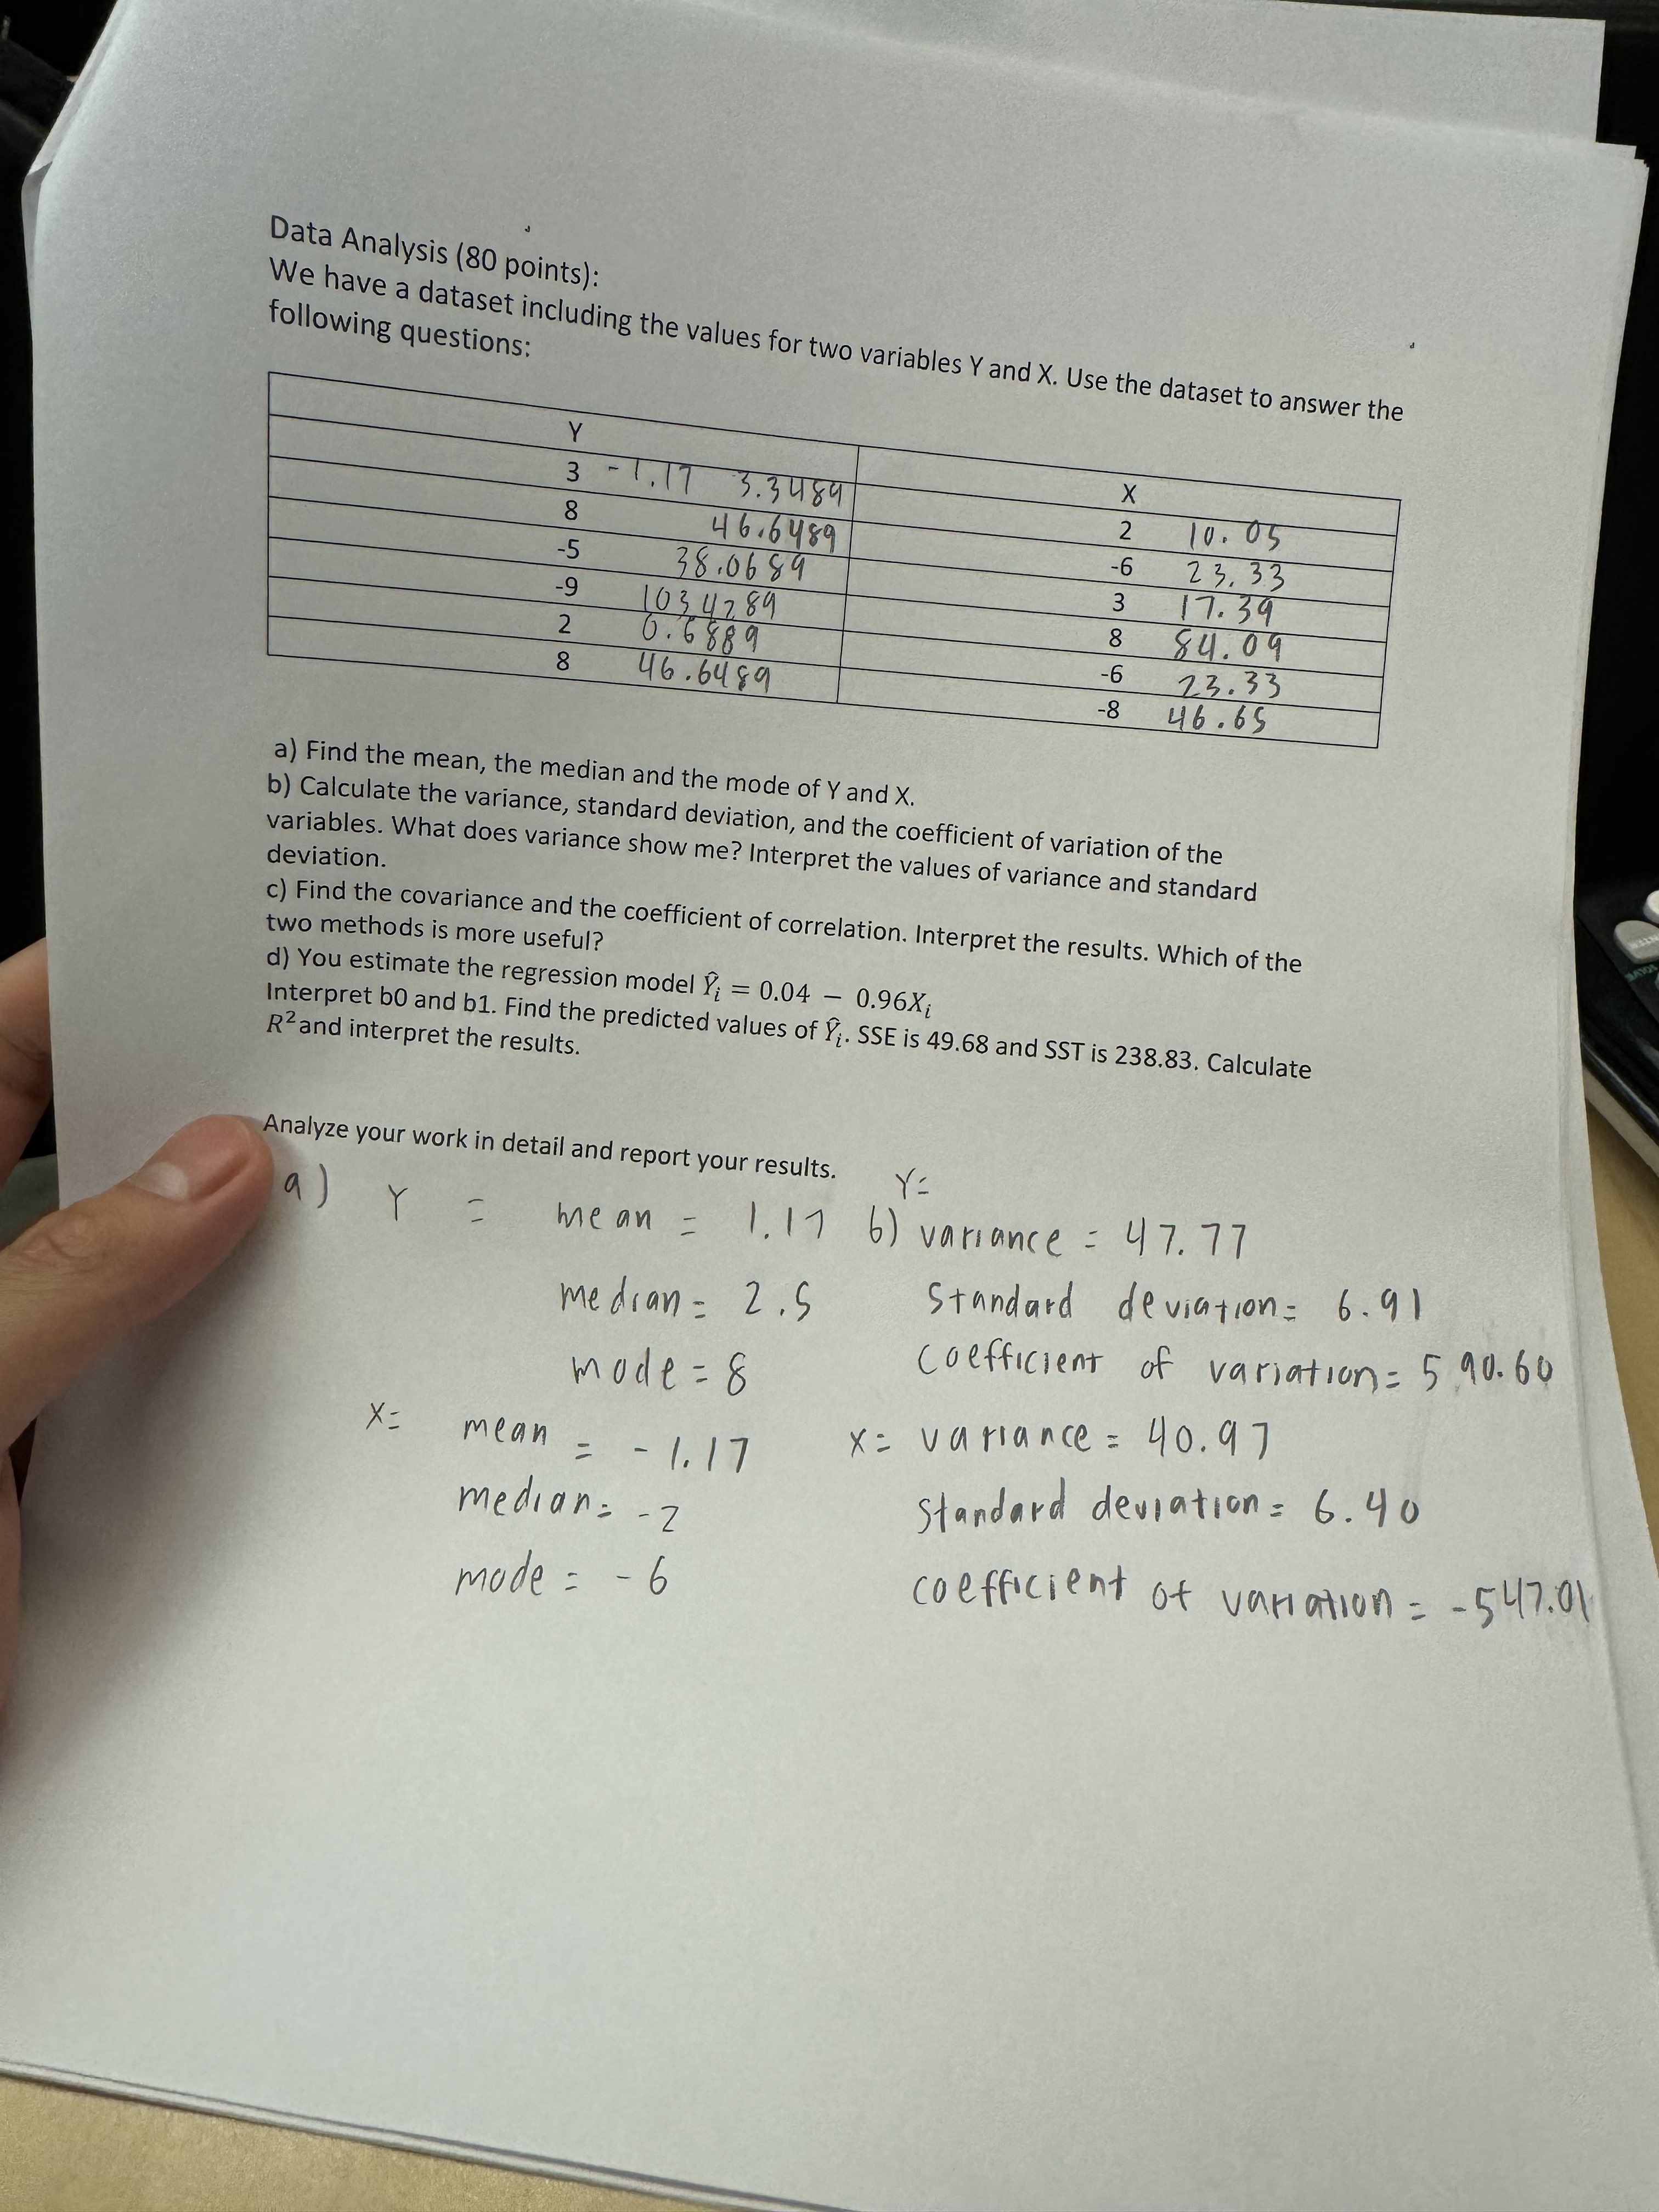 Data Analysis (80 points):
We have a dataset including the values for two variables Y and X. Use the dataset to answer the
following questions:
Y X
3 -1.17 3.3489 2 10.05
8 46.6489 -6 23.33
-5 38.0689 3 17.39
-9 103.4289 8 84.09
2 0.6889 -6 23.33
8 46.6489 -8 46.65
a) Find the mean, the median and the mode of Y and X.
b) Calculate the variance, standard deviation, and the coefficient of variation of the
variables. What does variance show me? Interpret the values of variance and standard
deviation.
c) Find the covariance and the coefficient of correlation. Interpret the results. Which of the
two methods is more useful?
d) You estimate the regression model Ŷᵢ = 0.04 − 0.96Xᵢ
Interpret b0 and b1. Find the predicted values of Ŷᵢ. SSE is 49.68 and SST is 238.83. Calculate
R² and interpret the results.
Analyze your work in detail and report your results.
a) Y = mean = 1.17
median = 2.5
mode = 8
X= mean = -1.17
median= -2
mode = -6
Y=
b) variance = 47.77
Standard deviation= 6.91
Coefficient of variation= 590.60
x= variance = 40.97
Standard deviation= 6.40
coefficient of variation = -547.01